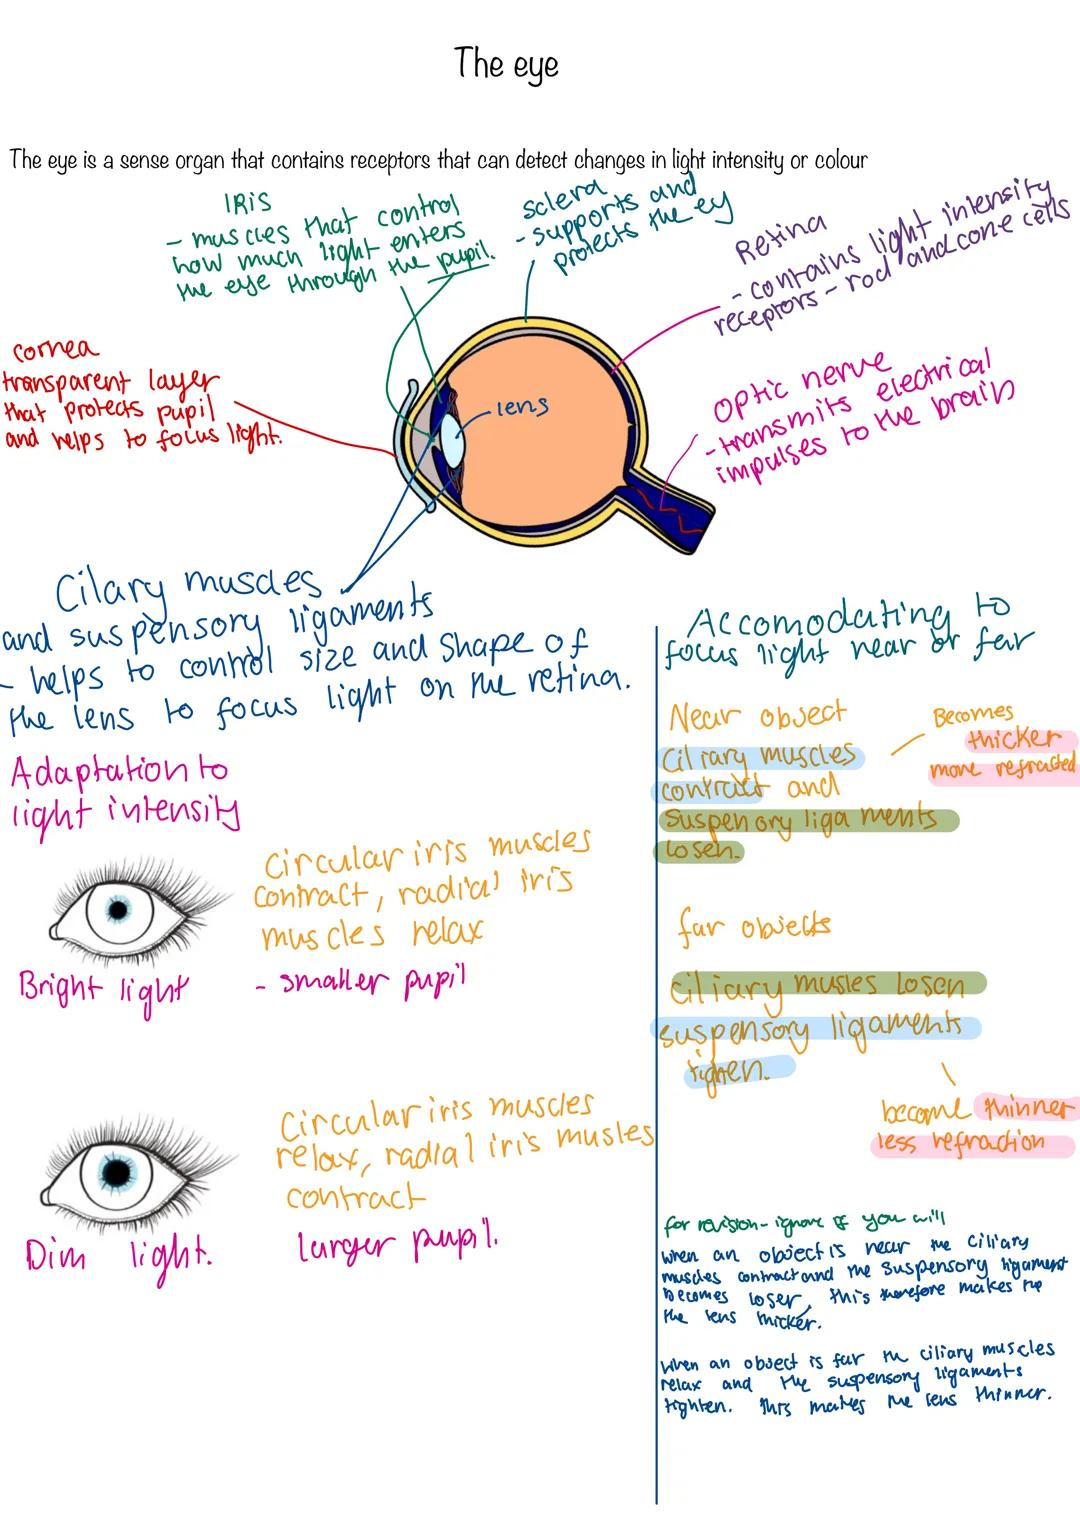 The eye
The eye is a sense organ that contains receptors that can detect changes in light intensity or colour
IRis
- muscles that control
how much light enters
the eye through the pupil.
sclera
- supports and
protects the ey
Retina
- contains light intensity
receptors - rod and cone cells
cornea
transparent layer
that protects pupil
and helps to focus light.
lens
Optic nerve
- transmits electrical
impulses to the brain
Cilary muscles
and suspensory ligaments
- helps to control size and shape of
the lens to focus light on the retina.
Adaptation to
light intensity
Circular iris muscles
contract, radial iris
muscles relax
- smaller pupil
Bright light
Circular iris muscles
relax, radial iris musles
contract
larger pupil.
Dim light.
Accomodating to
focus light near or far
Near object
Cilrary muscles
contract and
suspenory ligaments
losen.
Becomes
thicker
more refracted
far objects
ciliary musles losen
suspensory ligaments
tighten.
become thinner
less refraction
for revision - ignore if you will
when an object is near the ciliary
muscles contract and the suspensory ligament
becomes loser, this therefore makes
the lens thicker.
when an object is far the ciliary muscles
relax and the suspensory ligaments
tighten. This makes the lens thinner.